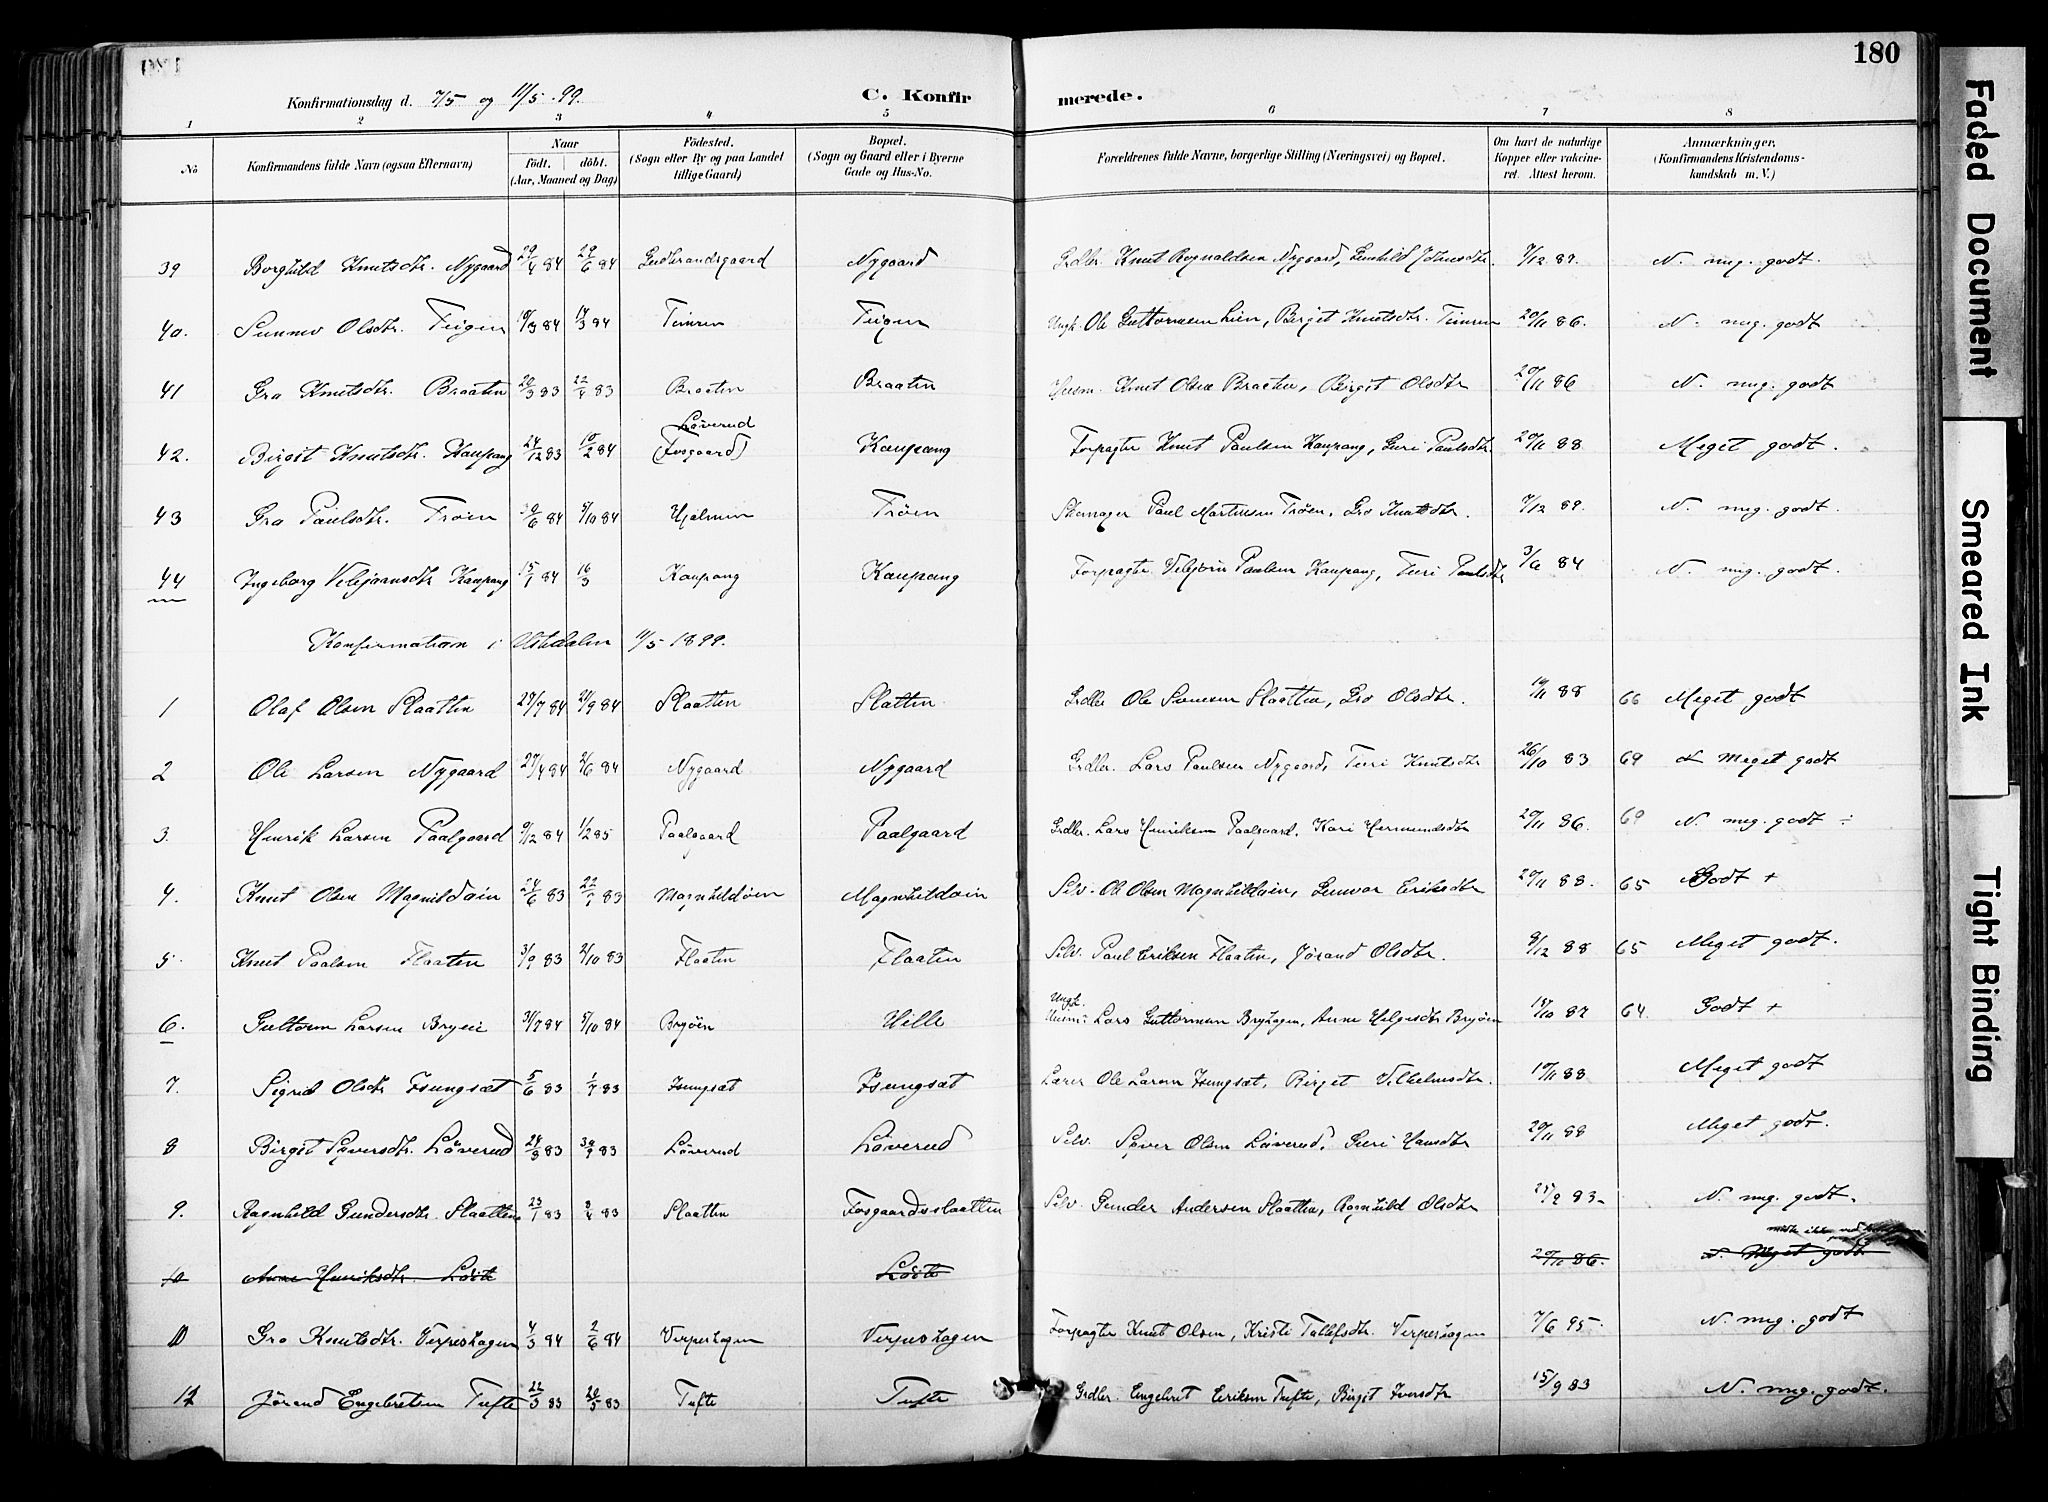 180
Konfirmationsdag d. 7/5 og 11/5 99.
C. Konfirmerede.
1 2 3 4 5 6 7 8
No
Konfirmandens fulde Navn (ogsaa Efternavn)
Naar født. døbt. (Aar, Maaned og Dag)
Fødested. (Sogn eller By og paa Landet tillige Gaard)
Bopæl. (Sogn og Gaard eller i Byerne Gade og Hus-No.
Forældrenes fulde Navne, borgerlige Stilling (Næringsvei) og Bopæl.
Om havt de naturlige Kopper eller vaccineret. Attest herom.
Anmærkninger. (Konfirmandens Kristendomskundskab m. V.)
39 Borghild Knutsdtr. Nygaard 29/4 84 29/6 84 Gudbrandsgaard Nygaard Grdlr. Knut Rognaldsen Nygaard, Gunhild 7/12 89. N. mg. godt.
40. Sunnev Olsdtr. Feigen 84 84 Timren Feigen Ungk. Ole Guttormsen Lien, Birgit Knutsdtr. Timren 20/11 86. N. mg. godt
41 Gro Knutsdtr. Braaten 20/3 83 22/4 83 Braaten Braaten Husm. Knut Olsen Braaten, Birgit Olsdtr 20/11 86 N. mg. godt
42. Birgit Knutsdtr. Kaupang 24/12 83 10/2 84 Løverud (Fosgaard) Kaupang Forpagter Knut Paulsen Kaupang, Guri Paulsdtr. 20/11 88 Meget godt.
43 Gro Paulsdtr. Trøen 84 5/10 84 Hjelmen Trøen Skomager Paul Martinsen Trøen, Gro Knutsdtr. 7/12 89. N. mg. godt.
44 Ingeborg Vebjørnsdtr Kaupang 15/1 84 16/3 Kaupang Kaupang Forpagter Vebjørn Paulsen Kaupang, Turi Paulsdtr 3/6 84 N. mg. godt.
Konfirmation i Ustedalen 11/5 1899.
1 Olaf Olsen Slaatten 28/7 84 21/9 84 Slaatten Slatten Grdlr Ole Slaatten, Gro Olsdtr. 88 66 Meget godt
2 Ole Larsen Nygaard 27/4 84 2/6 84 Nygaard Nygaard Grdlr. Lars Paulsen Nygaard, Turi Knutsdtr 26/10 83 69 Meget godt
3. Henrik Larsen Paalgaard 9/12 84 1/2 85 Paalgaard Paalgaard Grdlr. Lars Henriksen Paalgaard, Kari Hermundsdtr 20/11 86. 69 N. mg. godt ÷
4. Knut Olsen Magnildøin 24/6 83 83 Magnhildøien Magnhildøin Selv. Ole Olsen Magnhildøin, Gunvor Eriksdtr 20/11 88. 65 Godt +
5. Knut Paalsen Flaaten 3/9 83 2/10 83 Flaaten Flaaten Selv. Paul Eriksen Flaaten, Jørand Olsdtr. 8/12 88 65 Meget godt.
6. Guttorm Larsen Bryøie 31/7 84 5/10 84 Bryøen Ville Ungk. Lars Guttormsen Bryhagen, Anne Helgesdtr Bryøen 15/10 87 64. Godt +
7. Sigrid Olsdtr Isungset 5/6 83 83 Isungsæt Isungsæt Lærer Ole Larsen Isungsæt, Birget Vilhelmsdtr. 88 Meget godt
8 Birgit Syversdtr. Løverud 83 83 Løverud Løverud Selv. Syver Olsen Løverud, Guri Hansdtr 20/11 88 Meget godt.
9. Ragnhild Gundersdtr. Slaatten 23/1 83 3/4 83 Slaatten Fosgaardsslaatten Selv. Gunder Andersen Slaatten, Ragnhild Olsdtr 83. N. mg. godt.
10 Anne Henriksdtr. Løite Løite 20/11 86. N. Meget godt
10 Gro Knutsdtr. Verpeshagen 4/3 84 2/6 84 Verpeshagen Verpeshagen Forpagter Knut Olsen, Kristi Tollefsdtr. Verpeshagen 7/6 95. N. mg. godt
12 Jørand Engebretsen Tufte 22/3 83 20/5 83 Tufte Tufte Grdlr. Engebret Eriksen Tufte, Birgit Iversdtr 15/9 83 N. mg. godt.
Faded Document
Smeared Ink
Tight Binding